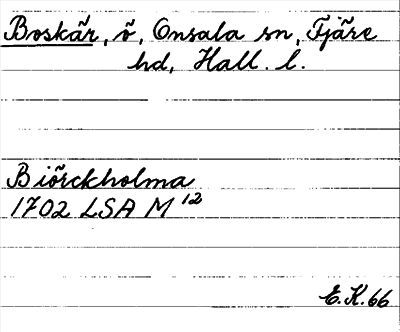 Boskär, ö, Onsala sn, Fjäre
hd, Hall. l.
Biörckholma
1702 LSA M 12
E.K.66